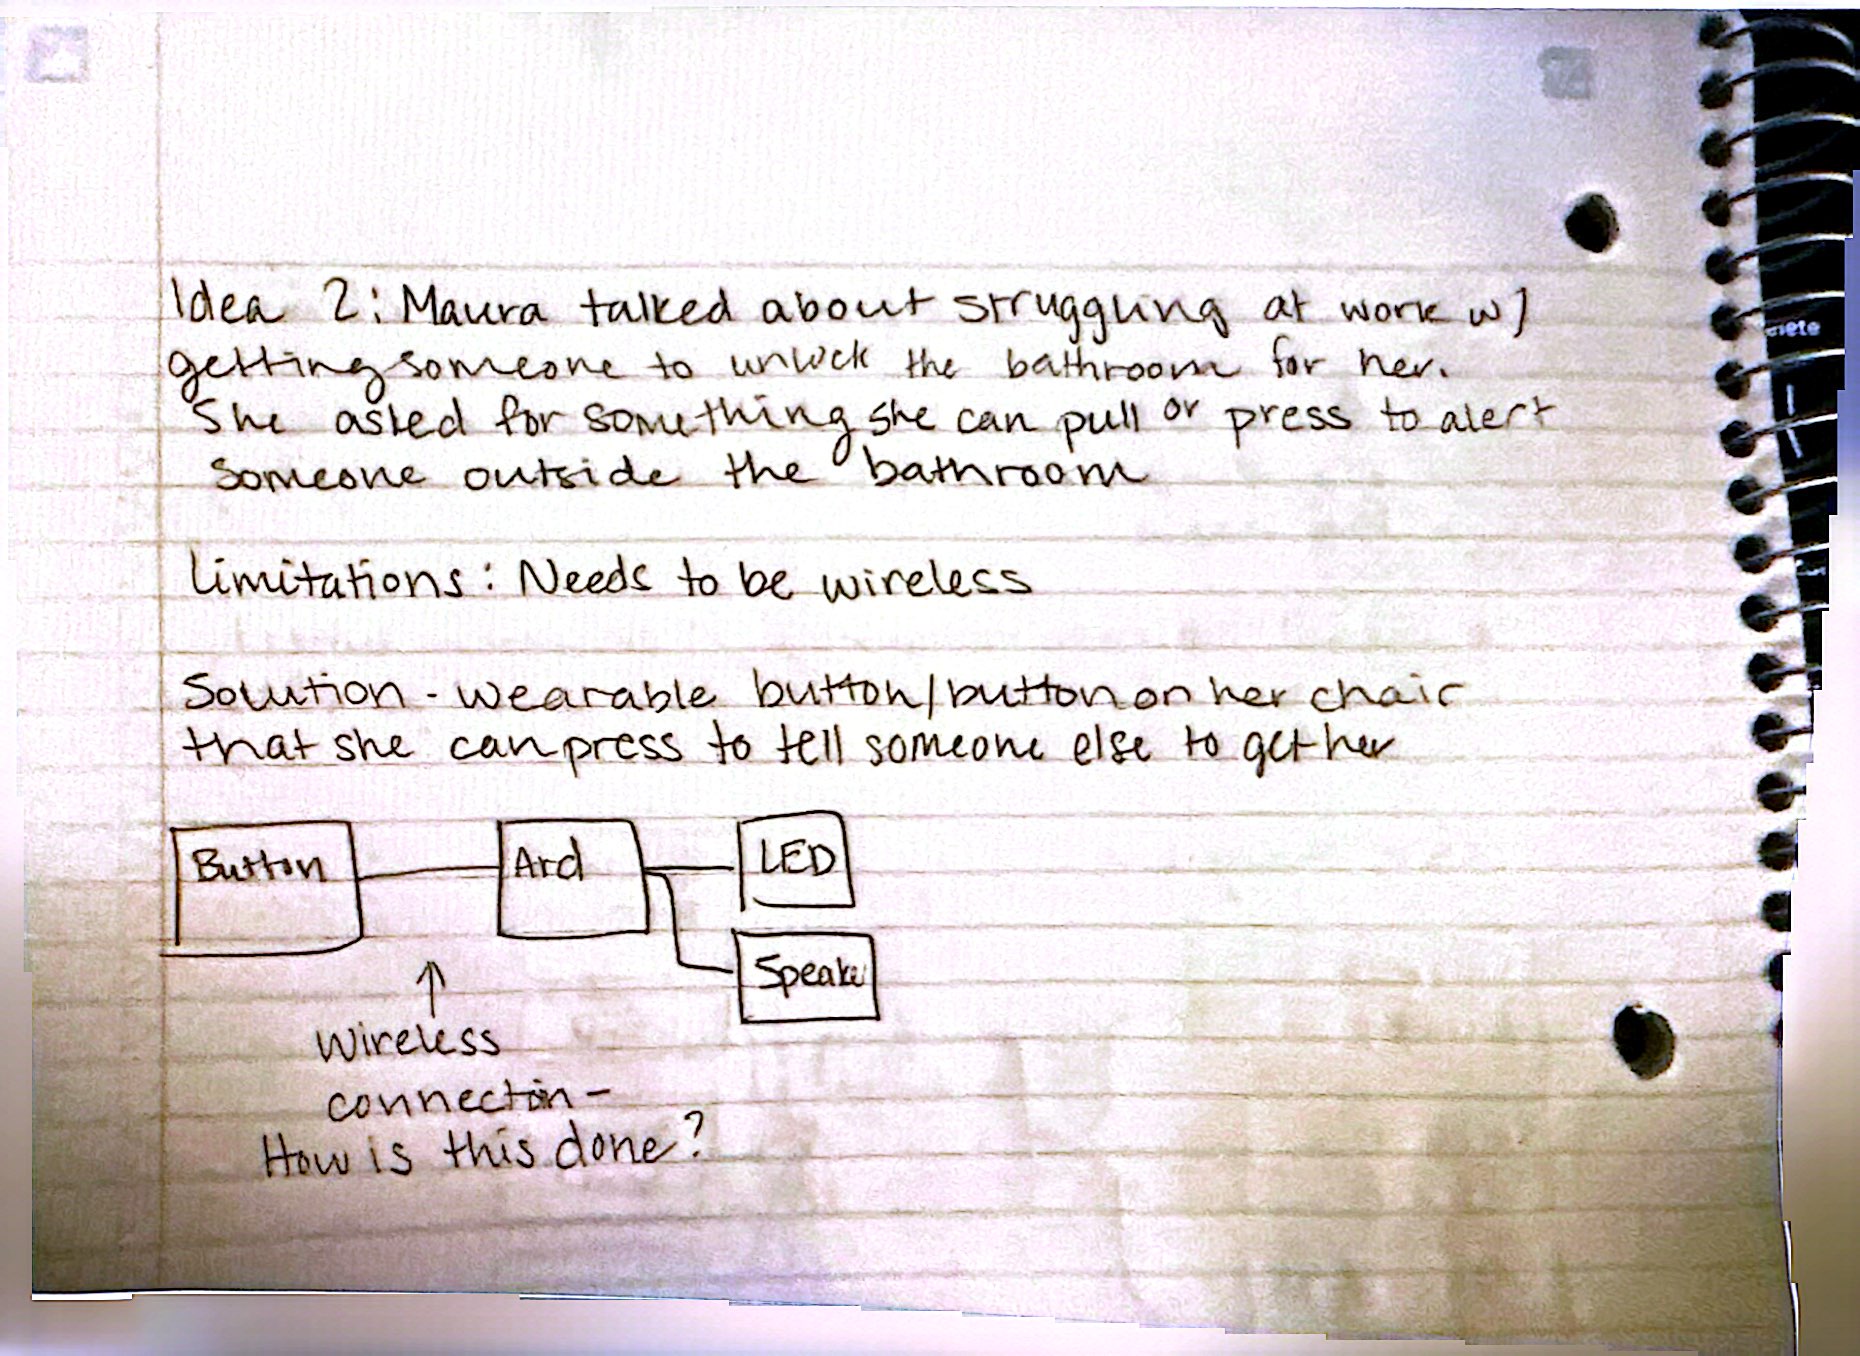 Idea 2: Maura talked about struggling at work w/
getting someone to unlock the bathroom for her.
She asked for something she can pull or press to alert
someone outside the bathroom
Limitations: Needs to be wireless
Solution - wearable button/button on her chair
that she can press to tell someone else to get her
Button
Ard
LED
Speaker
Wireless
connection-
How is this done?